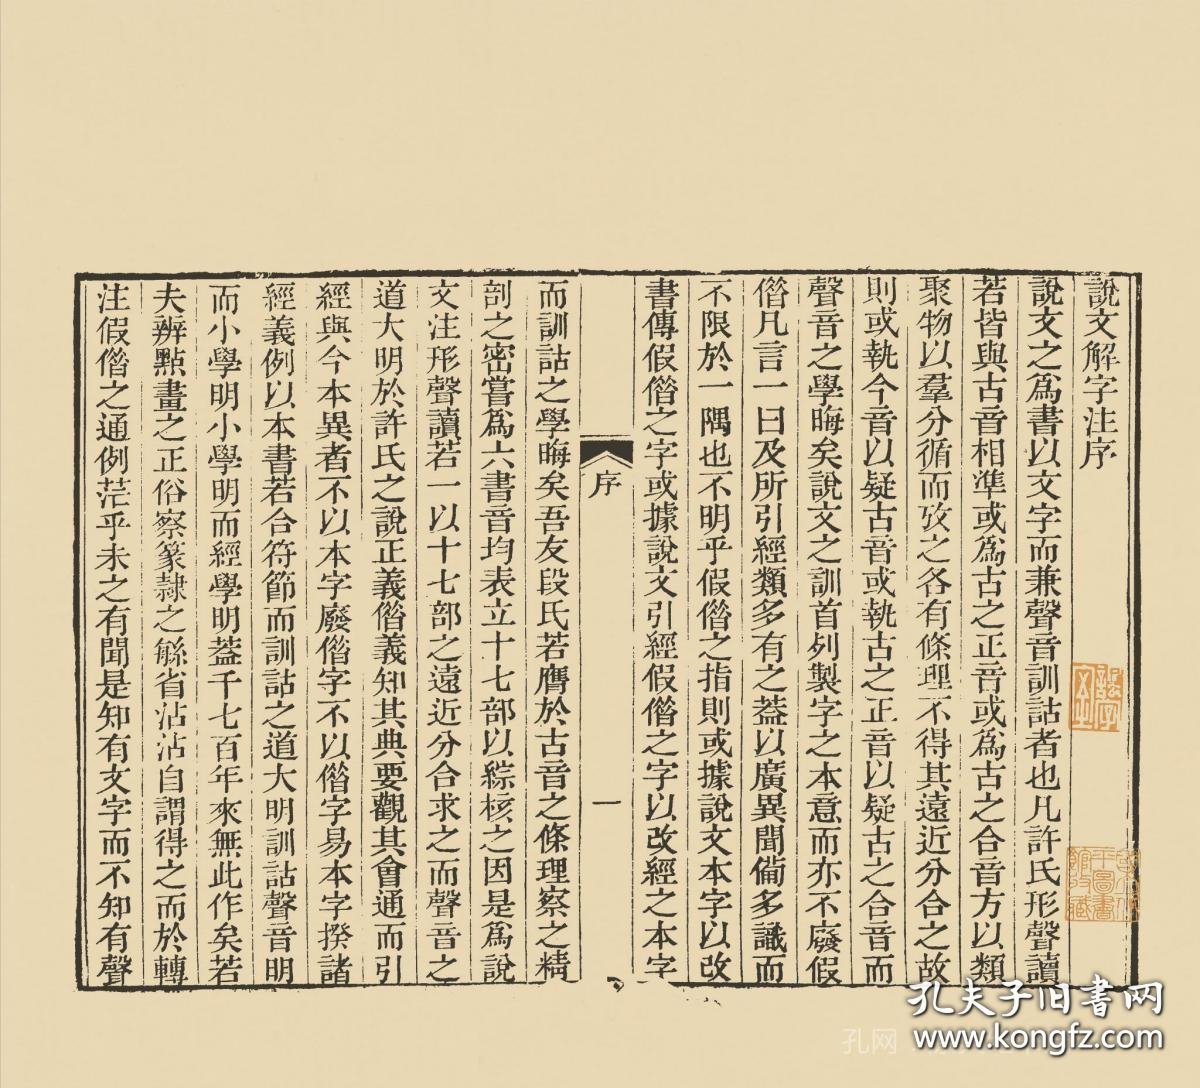 說文解字注序
說文之爲書以文字而兼聲音訓詁者也凡許氏形聲讀
若皆與古音相準或爲古之正音或爲古之合音方以類
聚物以羣分循而攷之各有條理不得其遠近分合之故
則或執今音以疑古音或執古之正音以疑古之合音而
聲音之學晦矣說文之訓首列製字之本意而亦不廢假
借凡言一曰及所引經類多有之葢以廣異聞僃多識而
不限於一隅也不明乎假借之指則或據說文本字以改
書傳假借之字或據說文引經假借之字以改經之本字
序
一
而訓詁之學晦矣吾友段氏若膺於古音之條理察之精
剖之密嘗爲六書音均表立十七部以綜核之因是爲說
文注形聲讀若一以十七部之遠近分合求之而聲音之
道大明於許氏之說正義借義知其典要觀其會通而引
經與今本異者不以本字廢借字不以借字易本字揆諸
經義例以本書若合符節而訓詁之道大明訓詁聲音明
而小學明小學明而經學明葢千七百年來無此作矣若
夫辨點畫之正俗察篆隷之緐省沾沾自謂得之而於轉
注假借之通例茫乎未之有聞是知有文字而不知有聲
孔夫子旧书网
www.kongfz.com
孔网